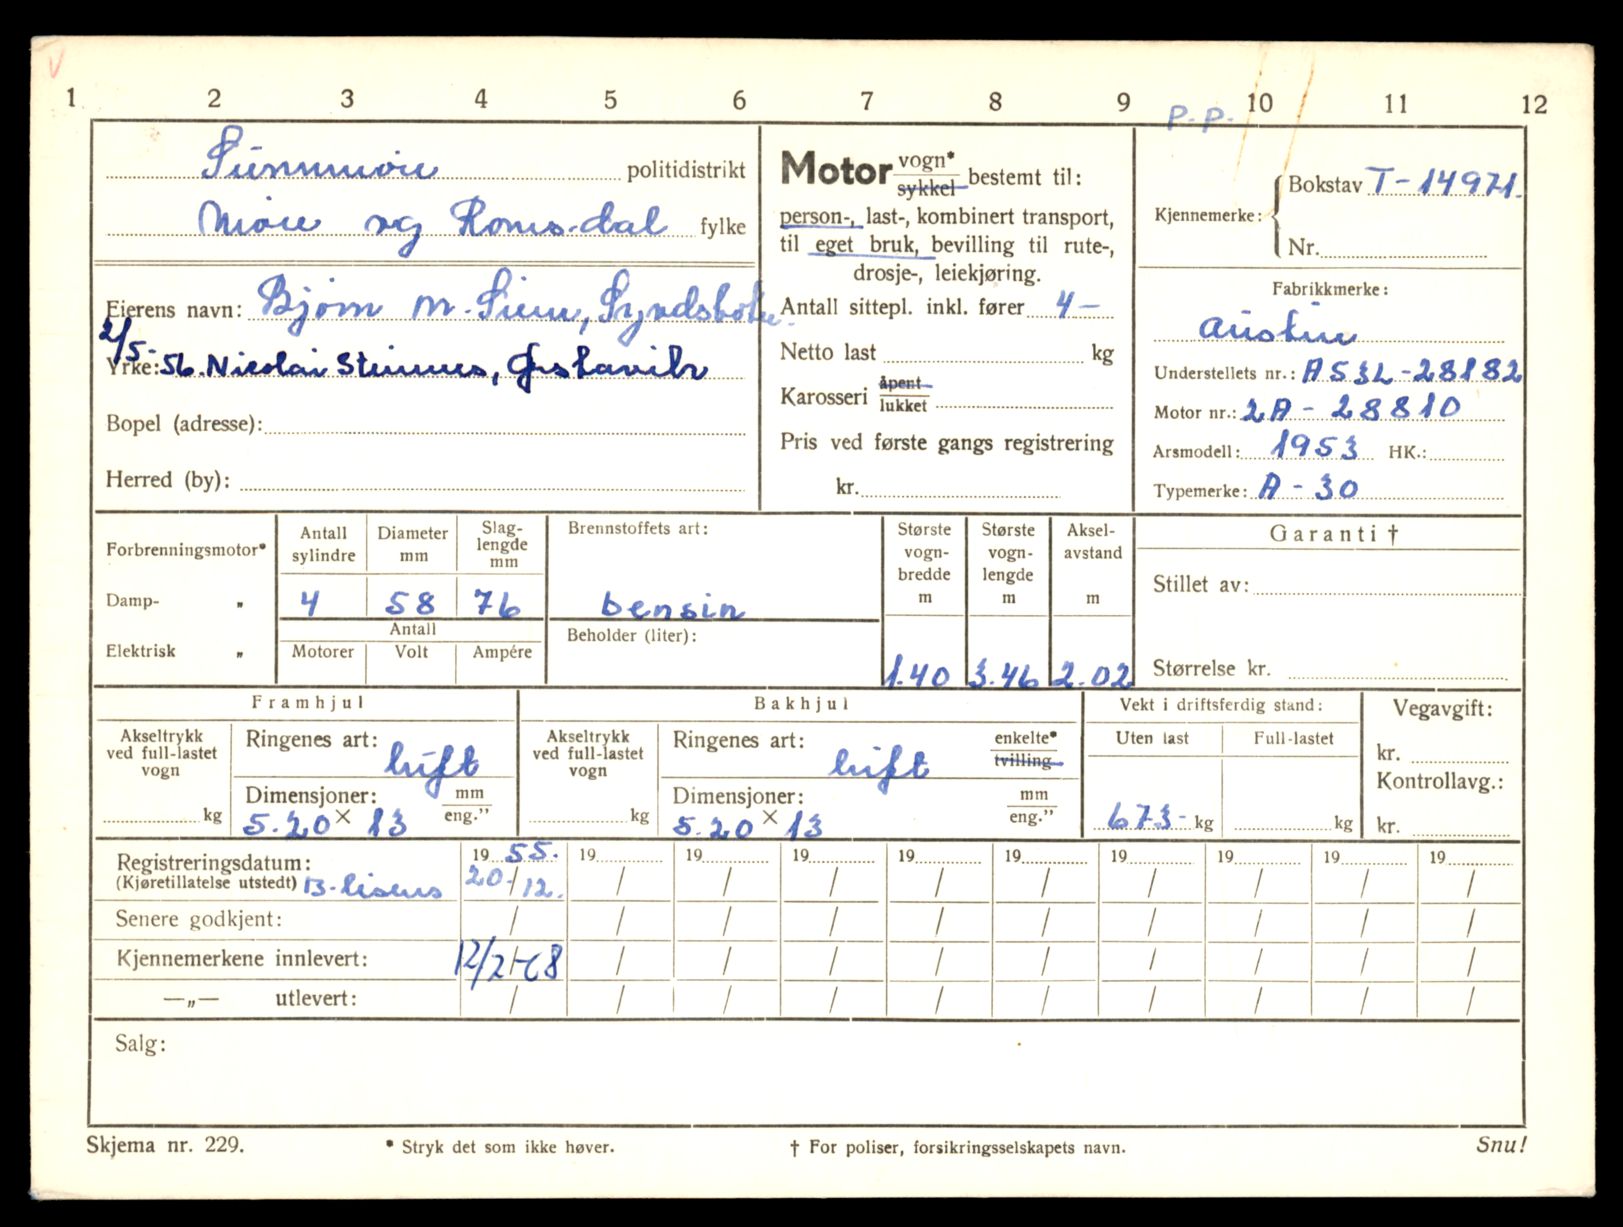 1 2 3 4 5 6 7 8 9 10 11 12
P.P.
Sunnmøre politidistrikt
Møre og Romsdal fylke
Eierens navn: Bjørn M. Siem,
2/5-
Yrke: 56. Nicolai Steinnes, Ørstavik
Bopel (adresse):
Herred (by):
Motor vogn*
sykkel bestemt til:
person-, last-, kombinert transport,
til eget bruk, bevilling til rute-,
drosje-, leiekjøring.
Antall sittepl. inkl. fører 4 —
Netto last kg
Karosseri åpent
lukket
Pris ved første gangs registrering
kr.
Kjennemerke: Bokstav T-14971.
Nr.
Fabrikkmerke:
Austin
Understellets nr.: AS3L-28182
Motor nr.: 2A - 28810
Arsmodell: 1953 HK.:
Typemerke: A-30
Forbrenningsmotor*
Damp- „
Elektrisk „
Antall sylindre
Diameter mm
Slag-
lengde
mm
4 58 76
Antall
Motorer Volt Ampére
Brennstoffets art:
bensin
Beholder (liter):
Største
vogn-
bredde
m
1.40
Største
vogn-
lengde
m
3.46
Aksel-
avstand
m
2.02
Garanti †
Stillet av:
Størrelse kr.
Framhjul
Akseltrykk
ved full-lastet
vogn
kg
Ringenes art: luft
Dimensjoner: mm
5.20 × 13 eng."
Bakhjul
Akseltrykk
ved full-lastet
vogn
kg
Ringenes art: luft enkelte*
tvilling
Dimensjoner: mm
5.20 × 13 eng."
Vekt i driftsferdig stand:
Uten last Full-lastet
673- kg kg
Vegavgift:
kr.
Kontrollavg.:
kr.
Registreringsdatum: 19 55. 19 19 19 19 19 19 19 19 19
(Kjøretillatelse utstedt) B-lisens 20/12. / / / / / / / / /
Senere godkjent: / / / / / / / / / /
Kjennemerkene innlevert: 12/2-68 / / / / / / / / /
—„— utlevert: / / / / / / / / / /
Salg:
Skjema nr. 229. * Stryk det som ikke høver. † For poliser, forsikringsselskapets navn. Snu!